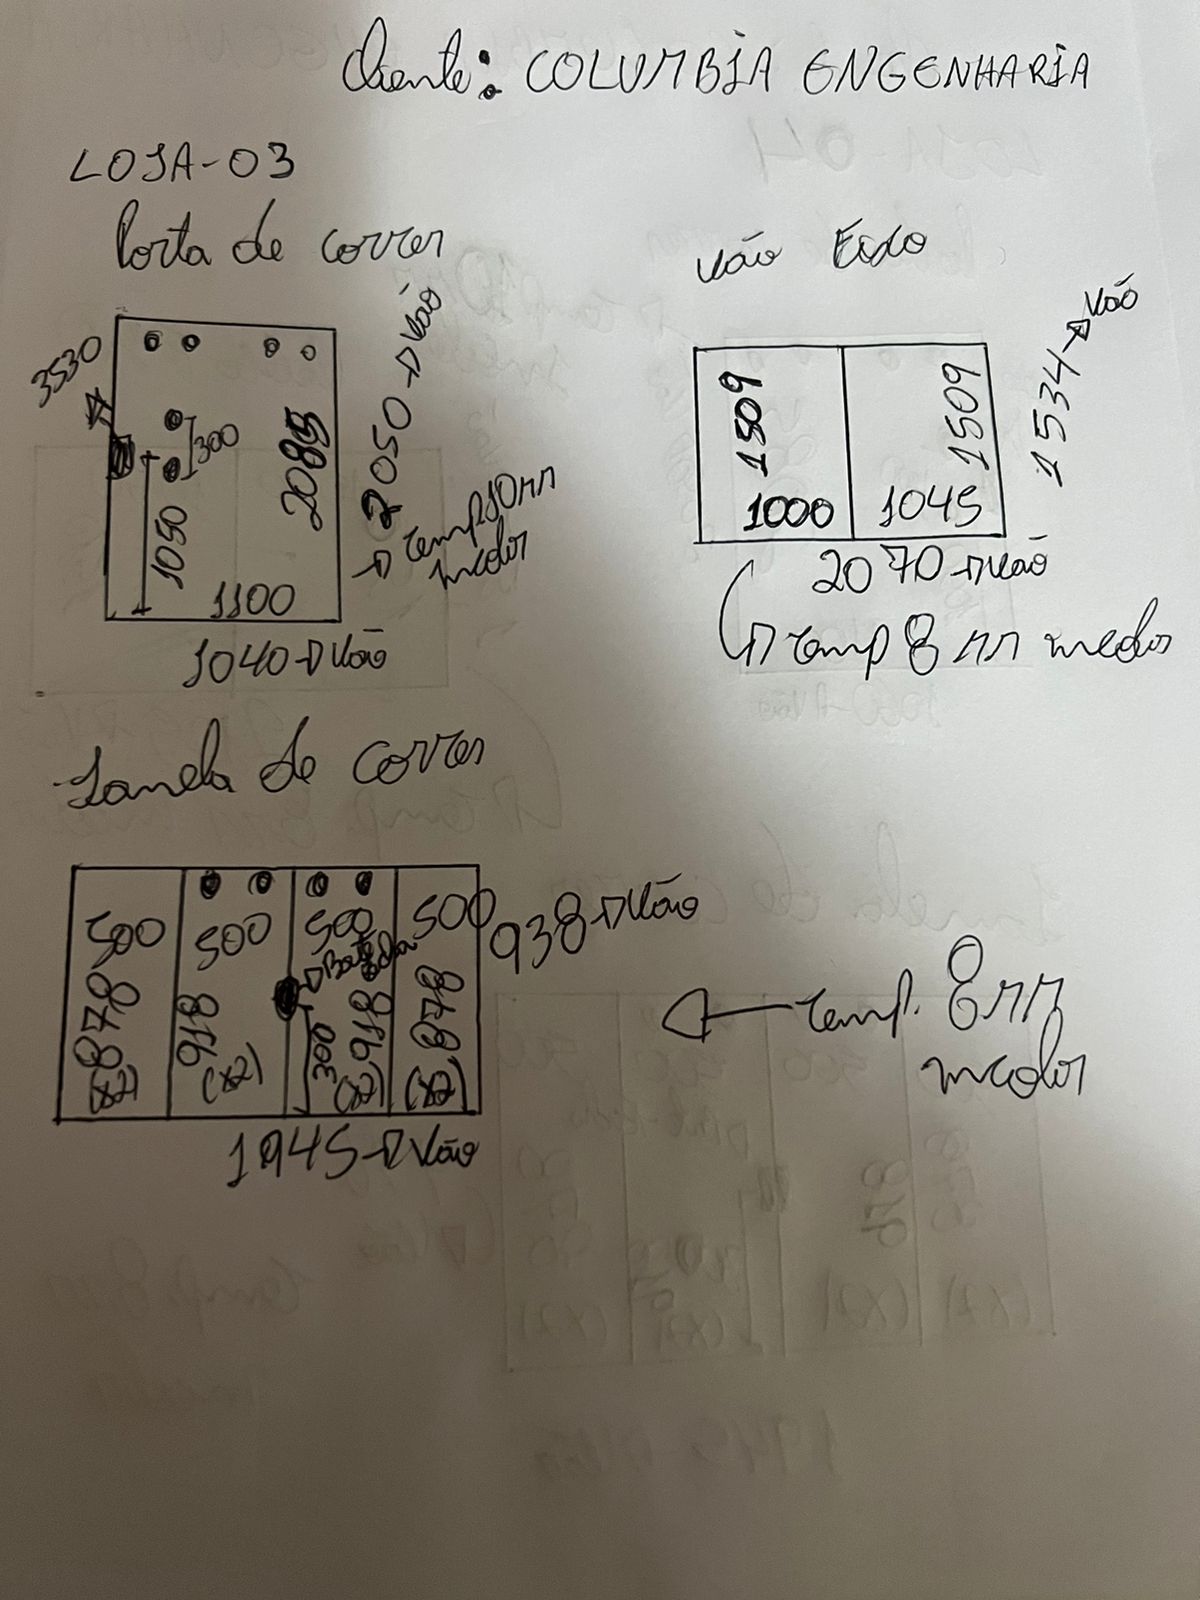 Cliente: COLUMBIA ENGENHARIA
LOJA-03
Porta de correr
3530
300
2085
1050
1100
2050→Vão
→Temp 10mm
incolor
1040→Vão
Vão Fixo
1509
1509
1000
1045
1534→Vão
2070→Vão
→Temp 8mm incolor
Janela de correr
500
500
500
500
878
918
918
878
(x2)
(x2)
(x2)
(x2)
300
938→Vão
1945→Vão
←Temp. 8mm
incolor